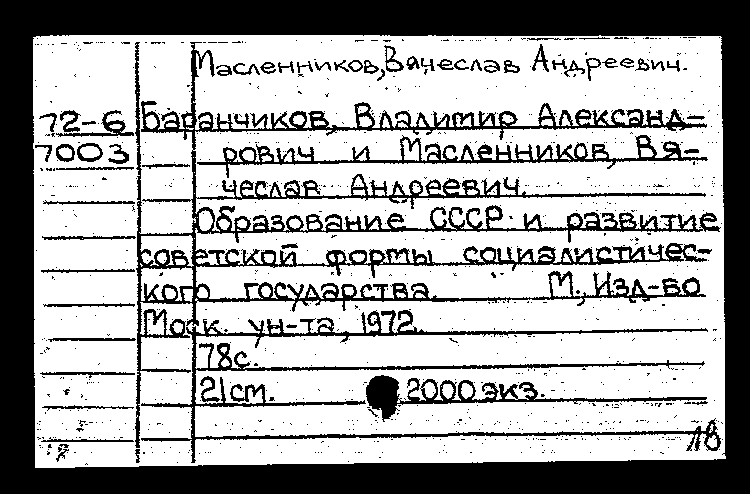 Масленников, Вячеслав Андреевич.
72-6 Баранчиков, Владимир Александ-
7003 рович и Масленников, Вя-
чеслав Андреевич.
Образование СССР и развитие
советской формы социалистичес-
кого государства. М., Изд-во
Моск. ун-та, 1972.
78с.
21см. 2000 экз.
18